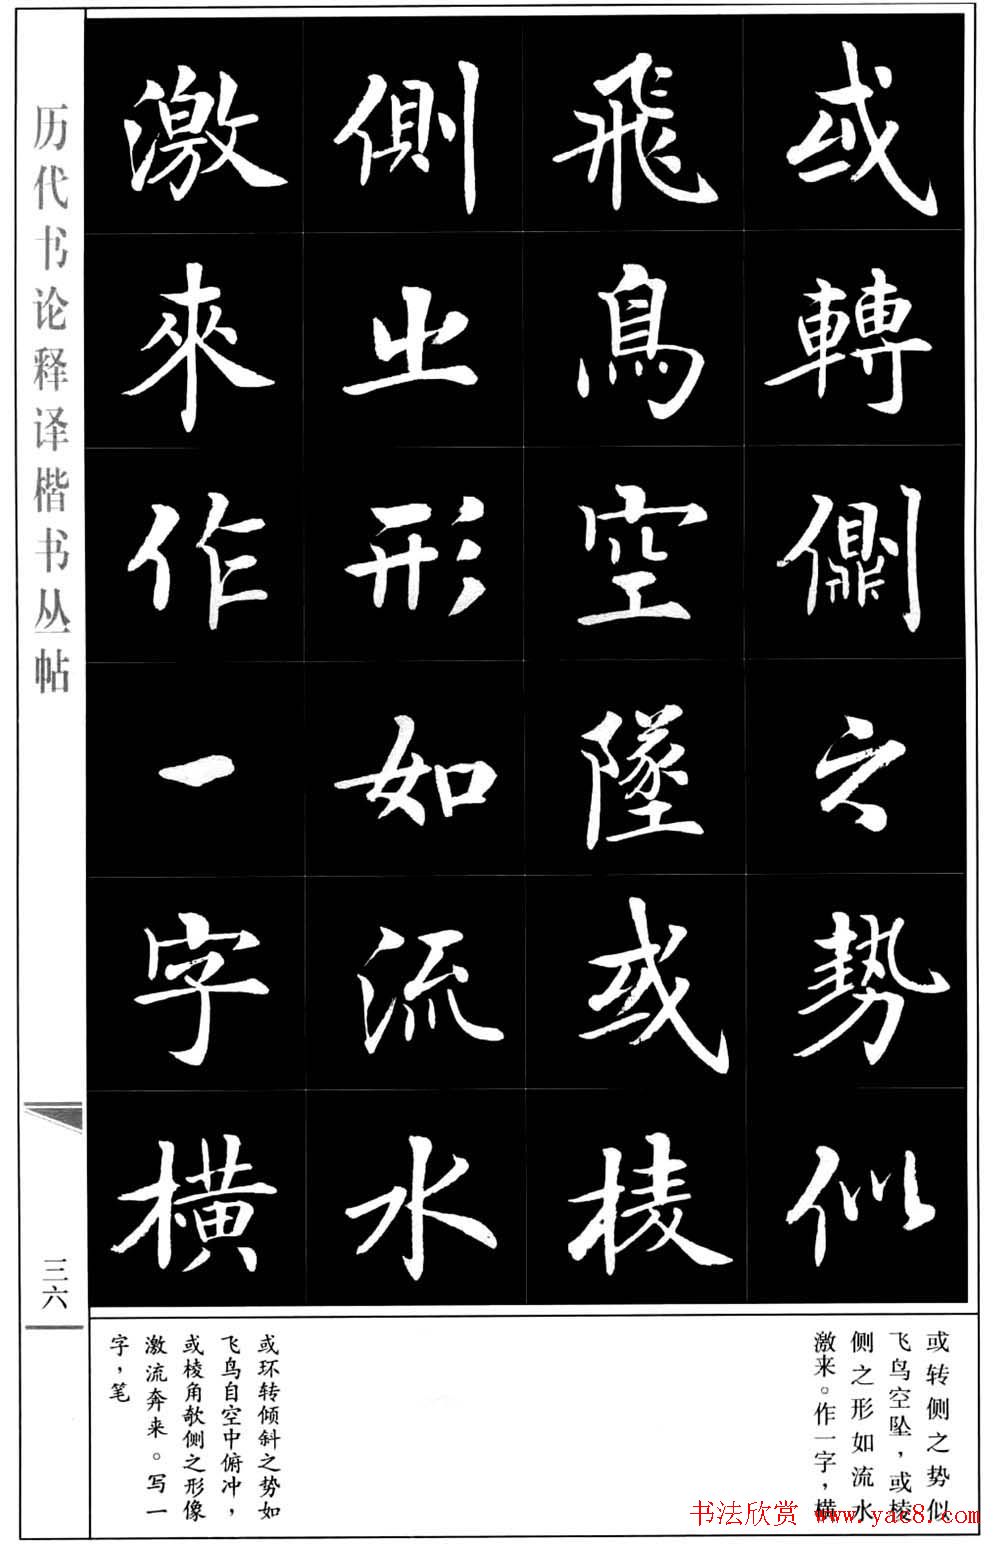 或轉側之勢似
飛鳥空墜或棱
側之形如流水
激來作一字橫
历代书论释译楷书丛帖
三六
或转侧之势似
飞鸟空坠，或棱
侧之形如流水
激来。作一字，横
或环转倾斜之势如
飞鸟自空中俯冲，
或棱角欹侧之形像
激流奔来。写一
字，笔
书法欣赏 www.yac8.com